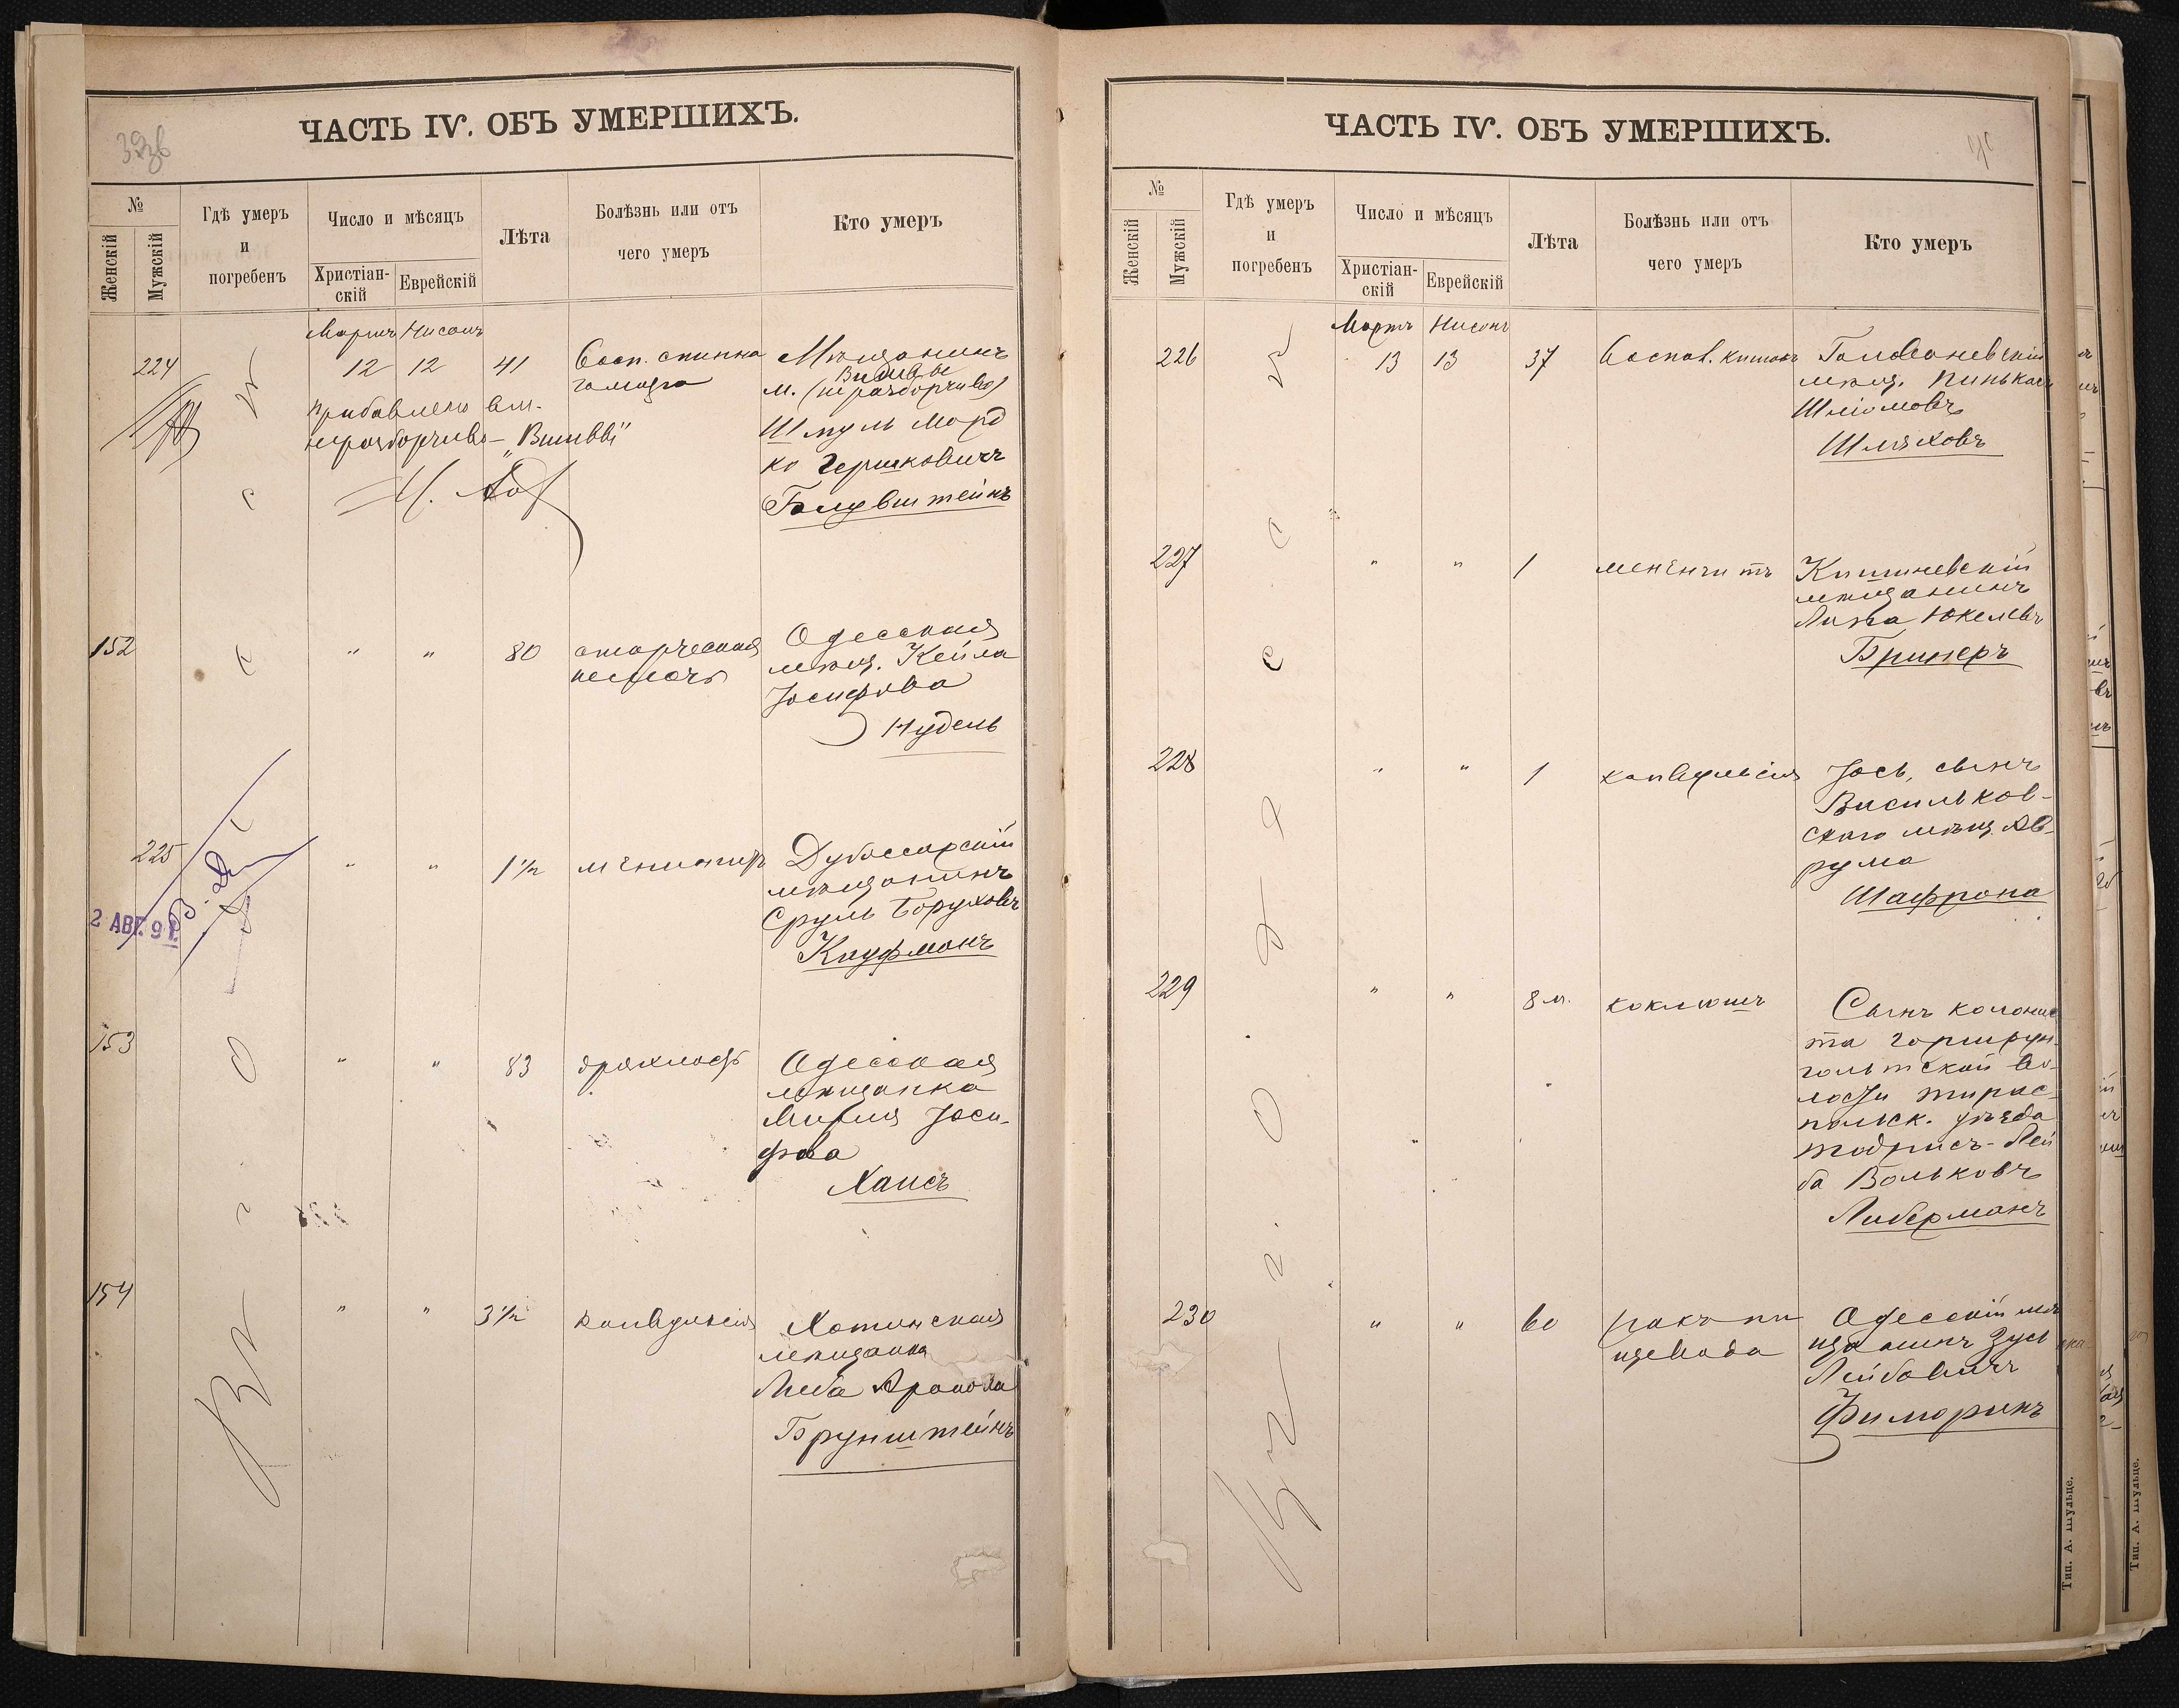 ЧАСТЬ IV. ОБЪ УМЕРШИХЪ.
№
Женскій
Мужскій
Гдѣ умеръ
и
погребенъ
Число и мѣсяцъ
Христіан-
скій
Еврейскій
Лѣта
Болѣзнь или отъ
чего умеръ
Кто умеръ
Мартъ Нисанъ
224
12 12 41
Восп. спинна
го мозга
Мѣщанинъ
м. (неразборчиво)
Шмуль Морд
ко Гершковичъ
Голдвштейнъ
прибавлено вм.
неразборчиво
152
" " 80
старческая
немочь
Одесская
мѣщ. Кейла
Іосифова
Нудель
225
" " 1 1/2
менингитъ
Дубоссарскій
мѣщанинъ
Сруль Боруховъ
Кауфманъ
2 АВГ. 91.
153
" " 83
дряхлость
Одесская
мѣщанка
Мирля Іоси-
фова
Хаисъ
154
" " 3 1/2
конвульсія
Хотинская
мѣщанка
Люба Аронова
Брунштейнъ
ЧАСТЬ IV. ОБЪ УМЕРШИХЪ.
№
Женскій
Мужскій
Гдѣ умеръ
и
погребенъ
Число и мѣсяцъ
Христіан-
скій
Еврейскій
Лѣта
Болѣзнь или отъ
чего умеръ
Кто умеръ
Мартъ Нисанъ
226
13 13 37
Воспал. кишокъ
Головоневскій
мѣщ. Пинькасъ
Шліомовъ
Шляховъ
227
" " 1
менингитъ
Кишиневскій
мѣщанинъ
Юкелевъ
Бринеръ
228
" " 1
конвульсія
Іось, сынъ
Васильков-
скаго мѣщ. Ав-
рума
Шафрана
229
" " 8 м.
коклюшъ
Сынъ колонис
та
волости тирас-
польск. уѣзда
Тодрисъ-Лей
ба Вольковъ
Либерманъ
230
" " 60
ракъ пи
щевода
Одесскій мѣ
щанинъ Зусь
Лейбовичъ
Фиморинъ
Тип. А. Шульце.
Тип. А. Шульце.